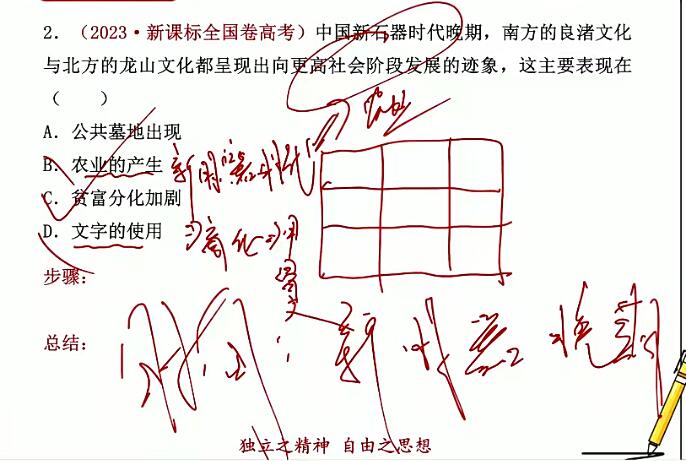 2. （2023·新课标全国卷高考）中国新石器时代晚期，南方的良渚文化
与北方的龙山文化都呈现出向更高社会阶段发展的迹象，这主要表现在
（  ）
A. 公共墓地出现
B. 农业的产生
C. 贫富分化加剧
D. 文字的使用
步骤：
总结：
时间：新时器晚期
独立之精神 自由之思想